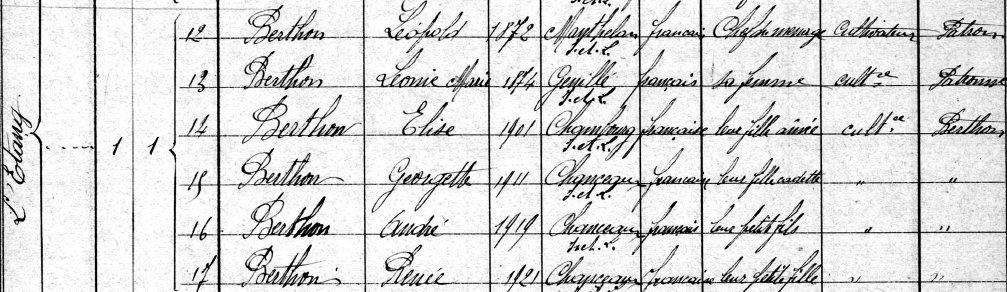 12 Berthon Léopold 1872 français Chef de ménage cultivateur Patron
I.et.L.
13 Berthon Léonie Marie 1874 Genillé français sa femme cult.ce Patronne
I.et.L.
L'Etang 1 1 14 Berthon Elise 1901 Chambourg française leur fille ainée cult.ce Berthon
I.et.L.
15 Berthon Georgette 1911 Chanceaux française leur fille cadette " "
I.et.L.
16 Berthon André 1919 Chanceaux français leur petit fils " "
I.et.L.
17 Berthon Renée 1921 Chanceaux française leur petite fille " "